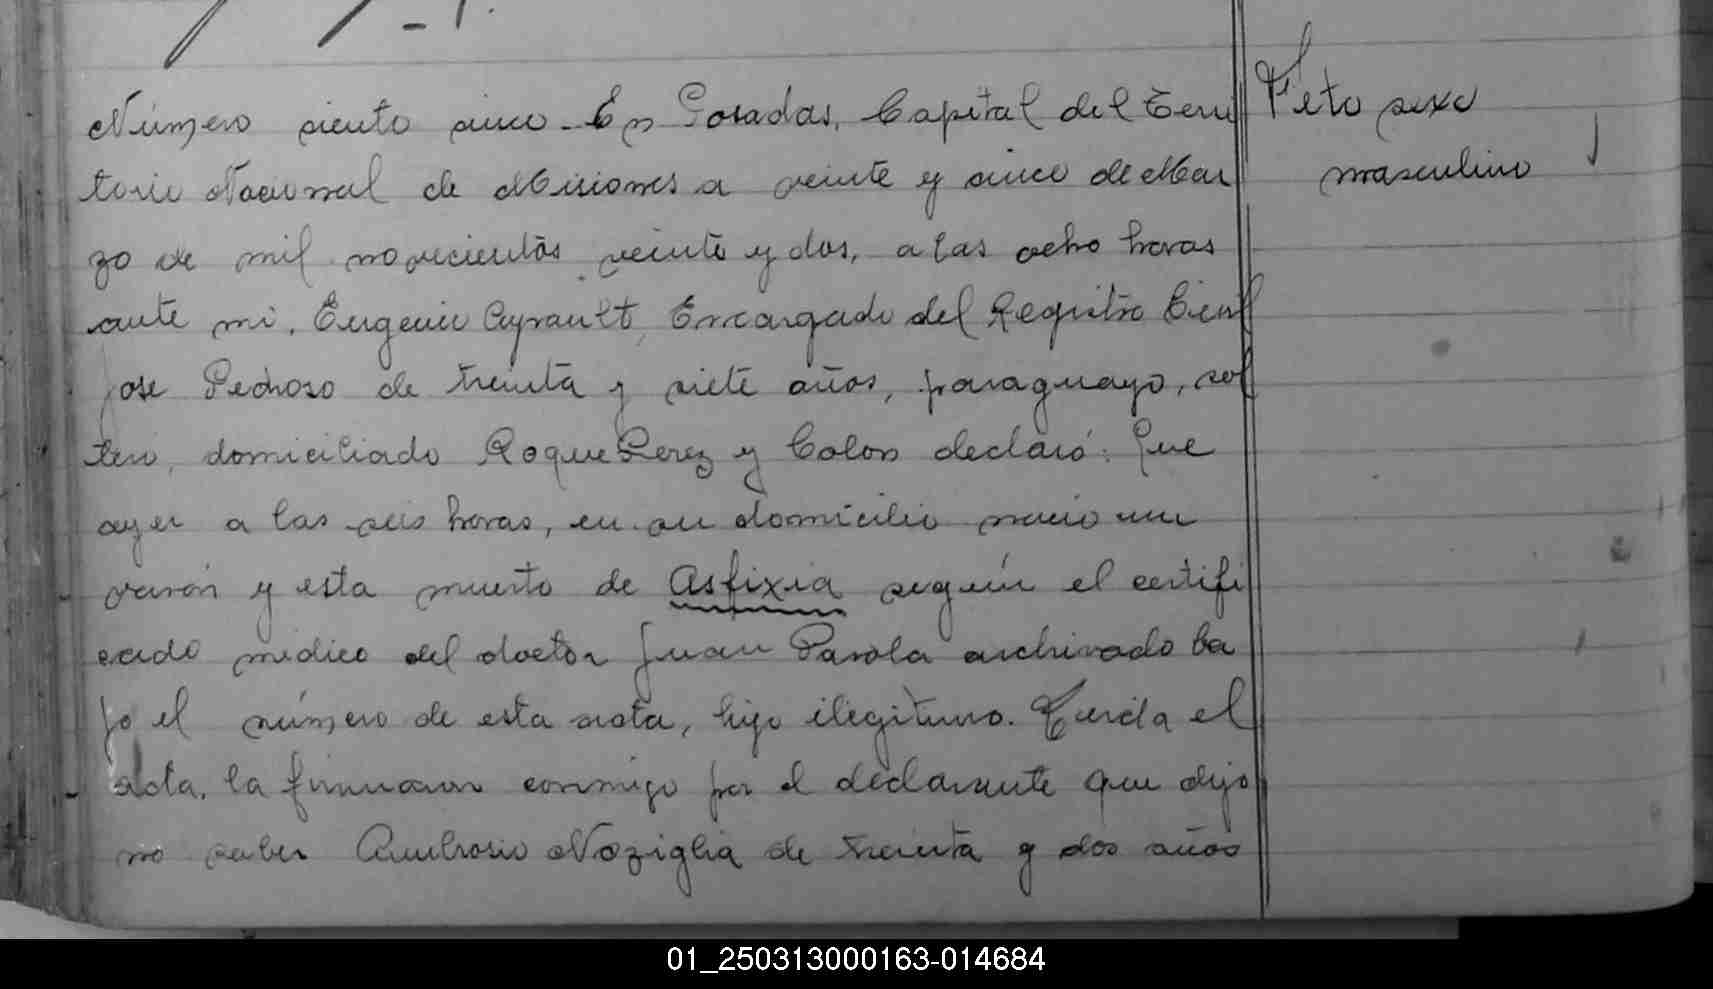 Número siento sinco. En Posadas, Capital del Terri
torio Nacional de Misiones a veinte y cinco de Mar
zo de mil novecientos veinte y dos, a las ocho horas
ante mi, Eugenio Ayrault, Encargado del Registro Civil
Jose Pedroso de treinta y siete años, paraguayo, sol
tero, domiciliado Roque Perez y Colon declaró: Que
ayer a las seis horas, en su domicilio nacio un
varón y esta muerto de Asfixia según el certifi
cado medico del doctor Juan Parola archivado ba
jo el número de esta acta, hijo ilegitimo. Leida el
acta, la firmaron conmigo por el declarante que dijo
no saber Ambrosio Noziglia de treinta y dos años
Feto sexo
masculino
01_250313000163-014684